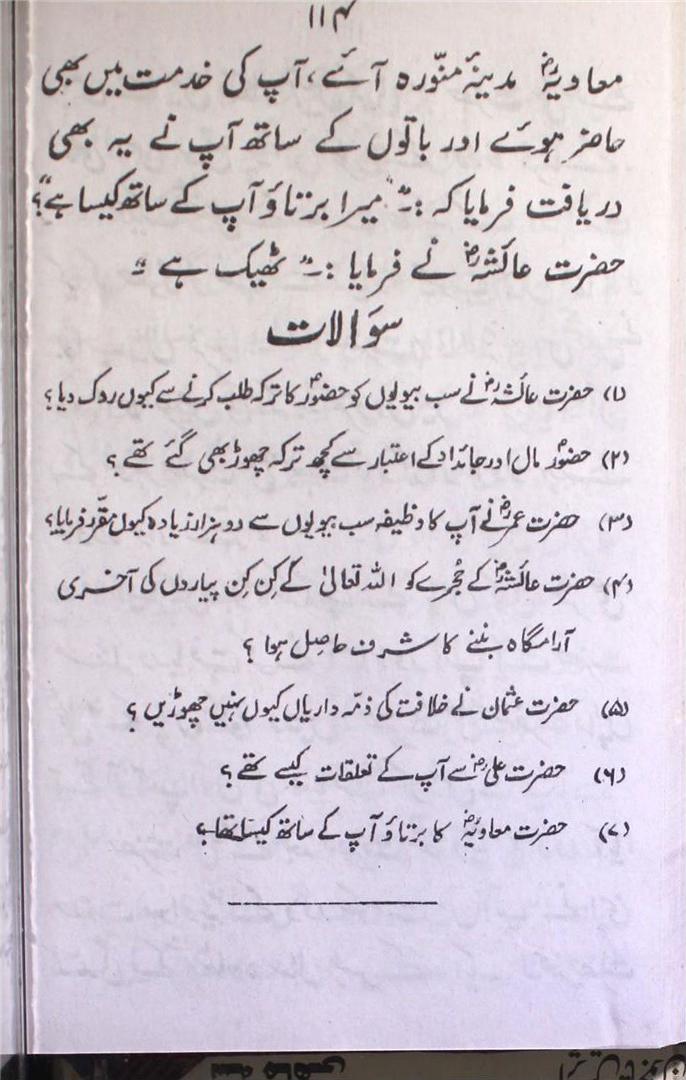 ۱۱۴
معاویہؓ مدینۂ منوّرہ آئے، آپ کی خدمت میں بھی
حاضر ہوئے اور باتوں کے ساتھ آپ نے یہ بھی
دریافت فرمایا کہ :۔ "میرا برتاؤ آپ کے ساتھ کیسا ہے؟"
حضرت عائشہؓ نے فرمایا :۔ "ٹھیک ہے"
سوَالات
(۱) حضرت عائشہؓ نے سب بیویوں کو حضورؐ کا ترکہ طلب کرنے سے کیوں روک دیا؟
(۲) حضورؐ مال اور جائداد کے اعتبار سے کچھ ترکہ چھوڑ بھی گئے تھے؟
(۳) حضرت عمرؓ نے آپ کا وظیفہ سب بیویوں سے دو ہزار زیادہ کیوں مقرّر فرمایا؟
(۴) حضرت عائشہؓ کے حُجرے کو اللہ تعالیٰ کے کِن کِن پیاروں کی آخری
آرامگاہ بننے کا شرف حاصِل ہوا؟
(۵) حضرت عثمان نے خلافت کی ذمّہ داریاں کیوں نہیں چھوڑیں؟
(۶) حضرت علیؓ سے آپ کے تعلقات کیسے تھے؟
(۷) حضرت معاویہؓ کا برتاؤ آپ کے ساتھ کیسا تھا؟